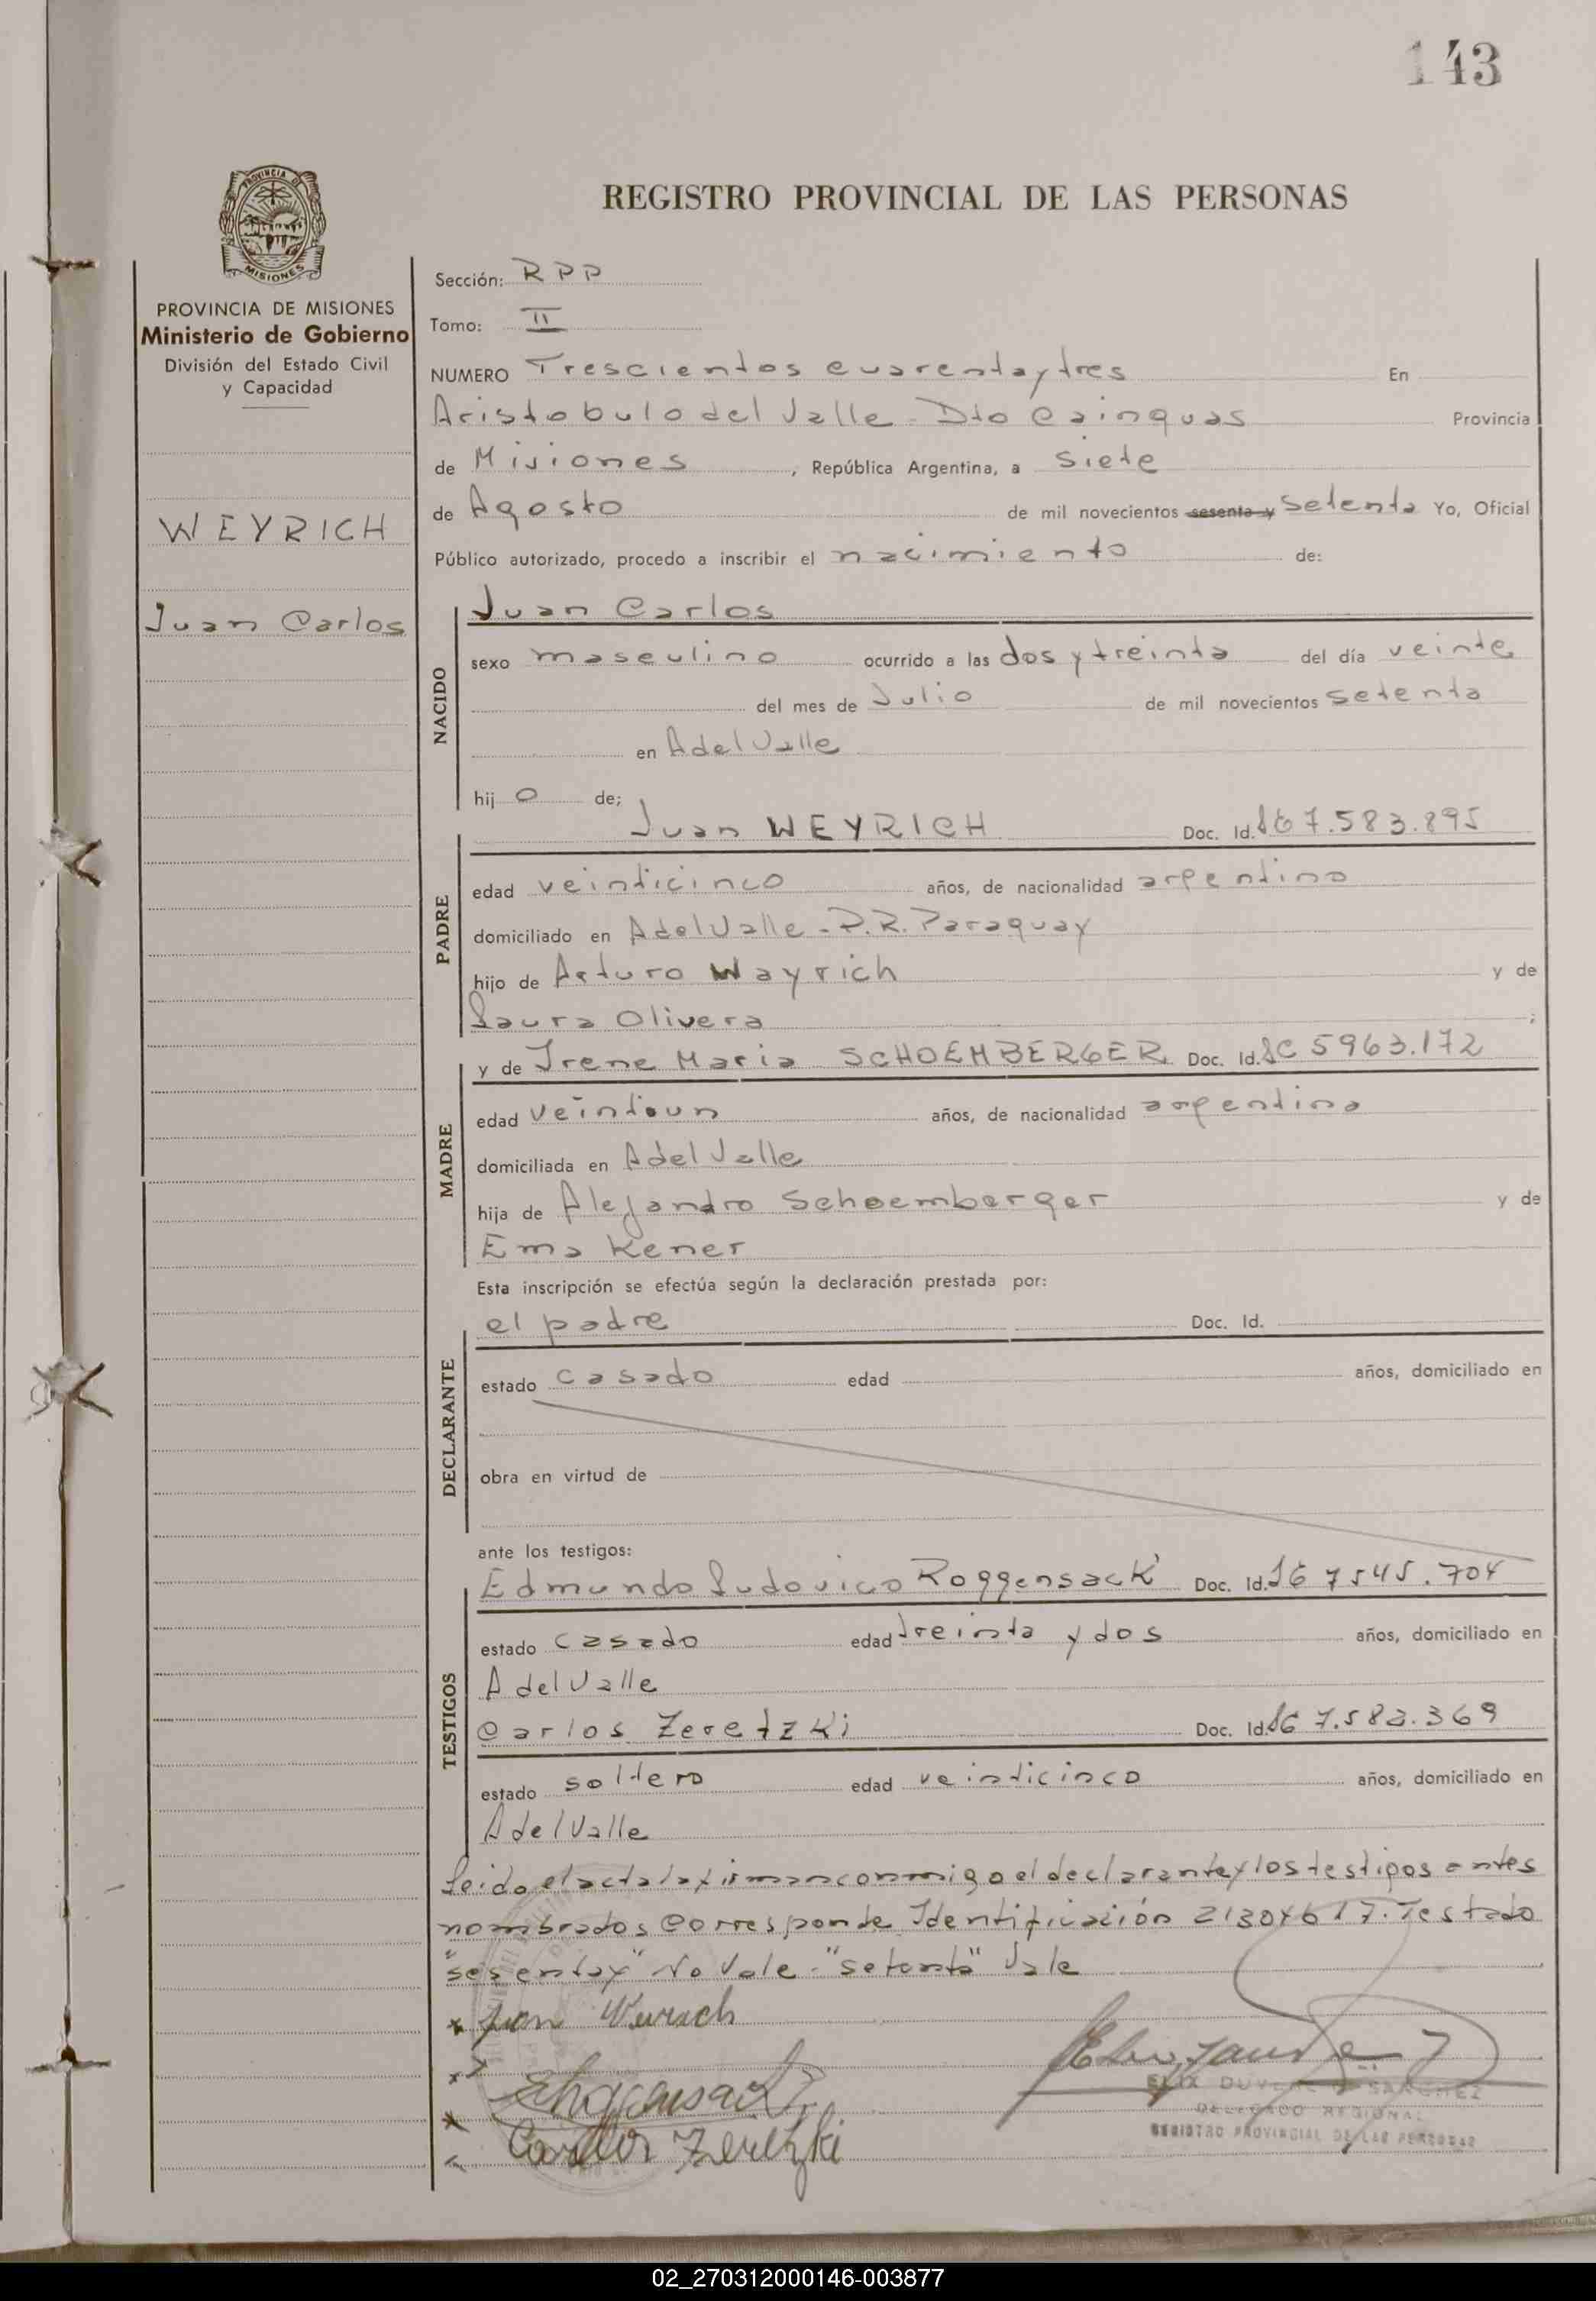 143
PROVINCIA DE
MISIONES
REGISTRO PROVINCIAL DE LAS PERSONAS
PROVINCIA DE MISIONES
Ministerio de Gobierno
División del Estado Civil
y Capacidad
WEYRICH
Juan Carlos
Sección: RPP
Tomo: II
NUMERO Trescientos cuarenta y tres En
Aristobulo del Valle - Dto Cainguas Provincia
de Misiones, República Argentina, a siete
de Agosto de mil novecientos sesenta y setenta Yo, Oficial
Público autorizado, procedo a inscribir el nacimiento de:
NACIDO
Juan Carlos
sexo masculino ocurrido a las dos y treinta del día veinte
del mes de Julio de mil novecientos setenta
en A del Valle
hij o de;
PADRE
Juan WEYRICH Doc. Id. 7.583.895
edad veinticinco años, de nacionalidad argentino
domiciliado en A del Valle - P.R. Paraguay
hijo de Arturo Wayrich y de
Laura Olivera ;
MADRE
y de Irene Maria SCHOEMBERGER Doc. Id. LC 5963.172
edad veintiun años, de nacionalidad argentina
domiciliada en A del Valle
hija de Alejandro Schoemberger y de
Ema Kener
DECLARANTE
Esta inscripción se efectúa según la declaración prestada por:
el padre Doc. Id.
estado casado edad años, domiciliado en
obra en virtud de
TESTIGOS
ante los testigos:
Edmundo Ludovico Roggensack Doc. Id. 7545.704
estado casado edad treinta y dos años, domiciliado en
A del Valle
Carlos Zeretzki Doc. Id.
estado soltero edad veinticinco años, domiciliado en
A del Valle
Leido el acta la firman conmigo el declarante y los testigos antes
nombrados corresponde Identificación Testado
"sesenta y" No Vale - "setenta" Vale
Carlos Zeretzki
DELEGADO REGIONAL
REGISTRO PROVINCIAL DE LAS PERSONAS
02_270312000146-003877